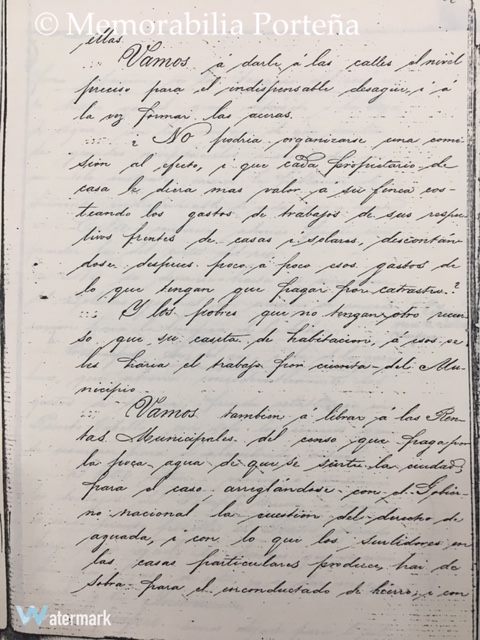 © Memorabilia Porteña
ellas.
Vamos á darle á las calles el nivel
preciso para el indispensable desagüe, i á
la vez formar las aceras.
¿No podria organizarse una comi-
sión al efecto, i que cada propietario de
casa le diera mas valor a su finca cos-
teando los gastos de trabajos de sus respec-
tivos frentes de casas i solares, descontán-
dose despues poco á poco esos gastos de
lo que tengan que pagar por catastro?
Y los pobres que no tengan otro recur-
so que su casita de habitacion, á esos se
les haria el trabajo por cuenta del Mu-
nicipio.
Vamos tambien á librar á las Ren-
tas Municipales del censo que paga por
la poca agua de que se surte la ciudad,
para el caso arreglándose con el Gobier-
no nacional la cuestion del derecho de
aguada, i con lo que los surtidores en
las casas particulares produce, hai de
sobra para el inconductado de hierro, i con
Watermark